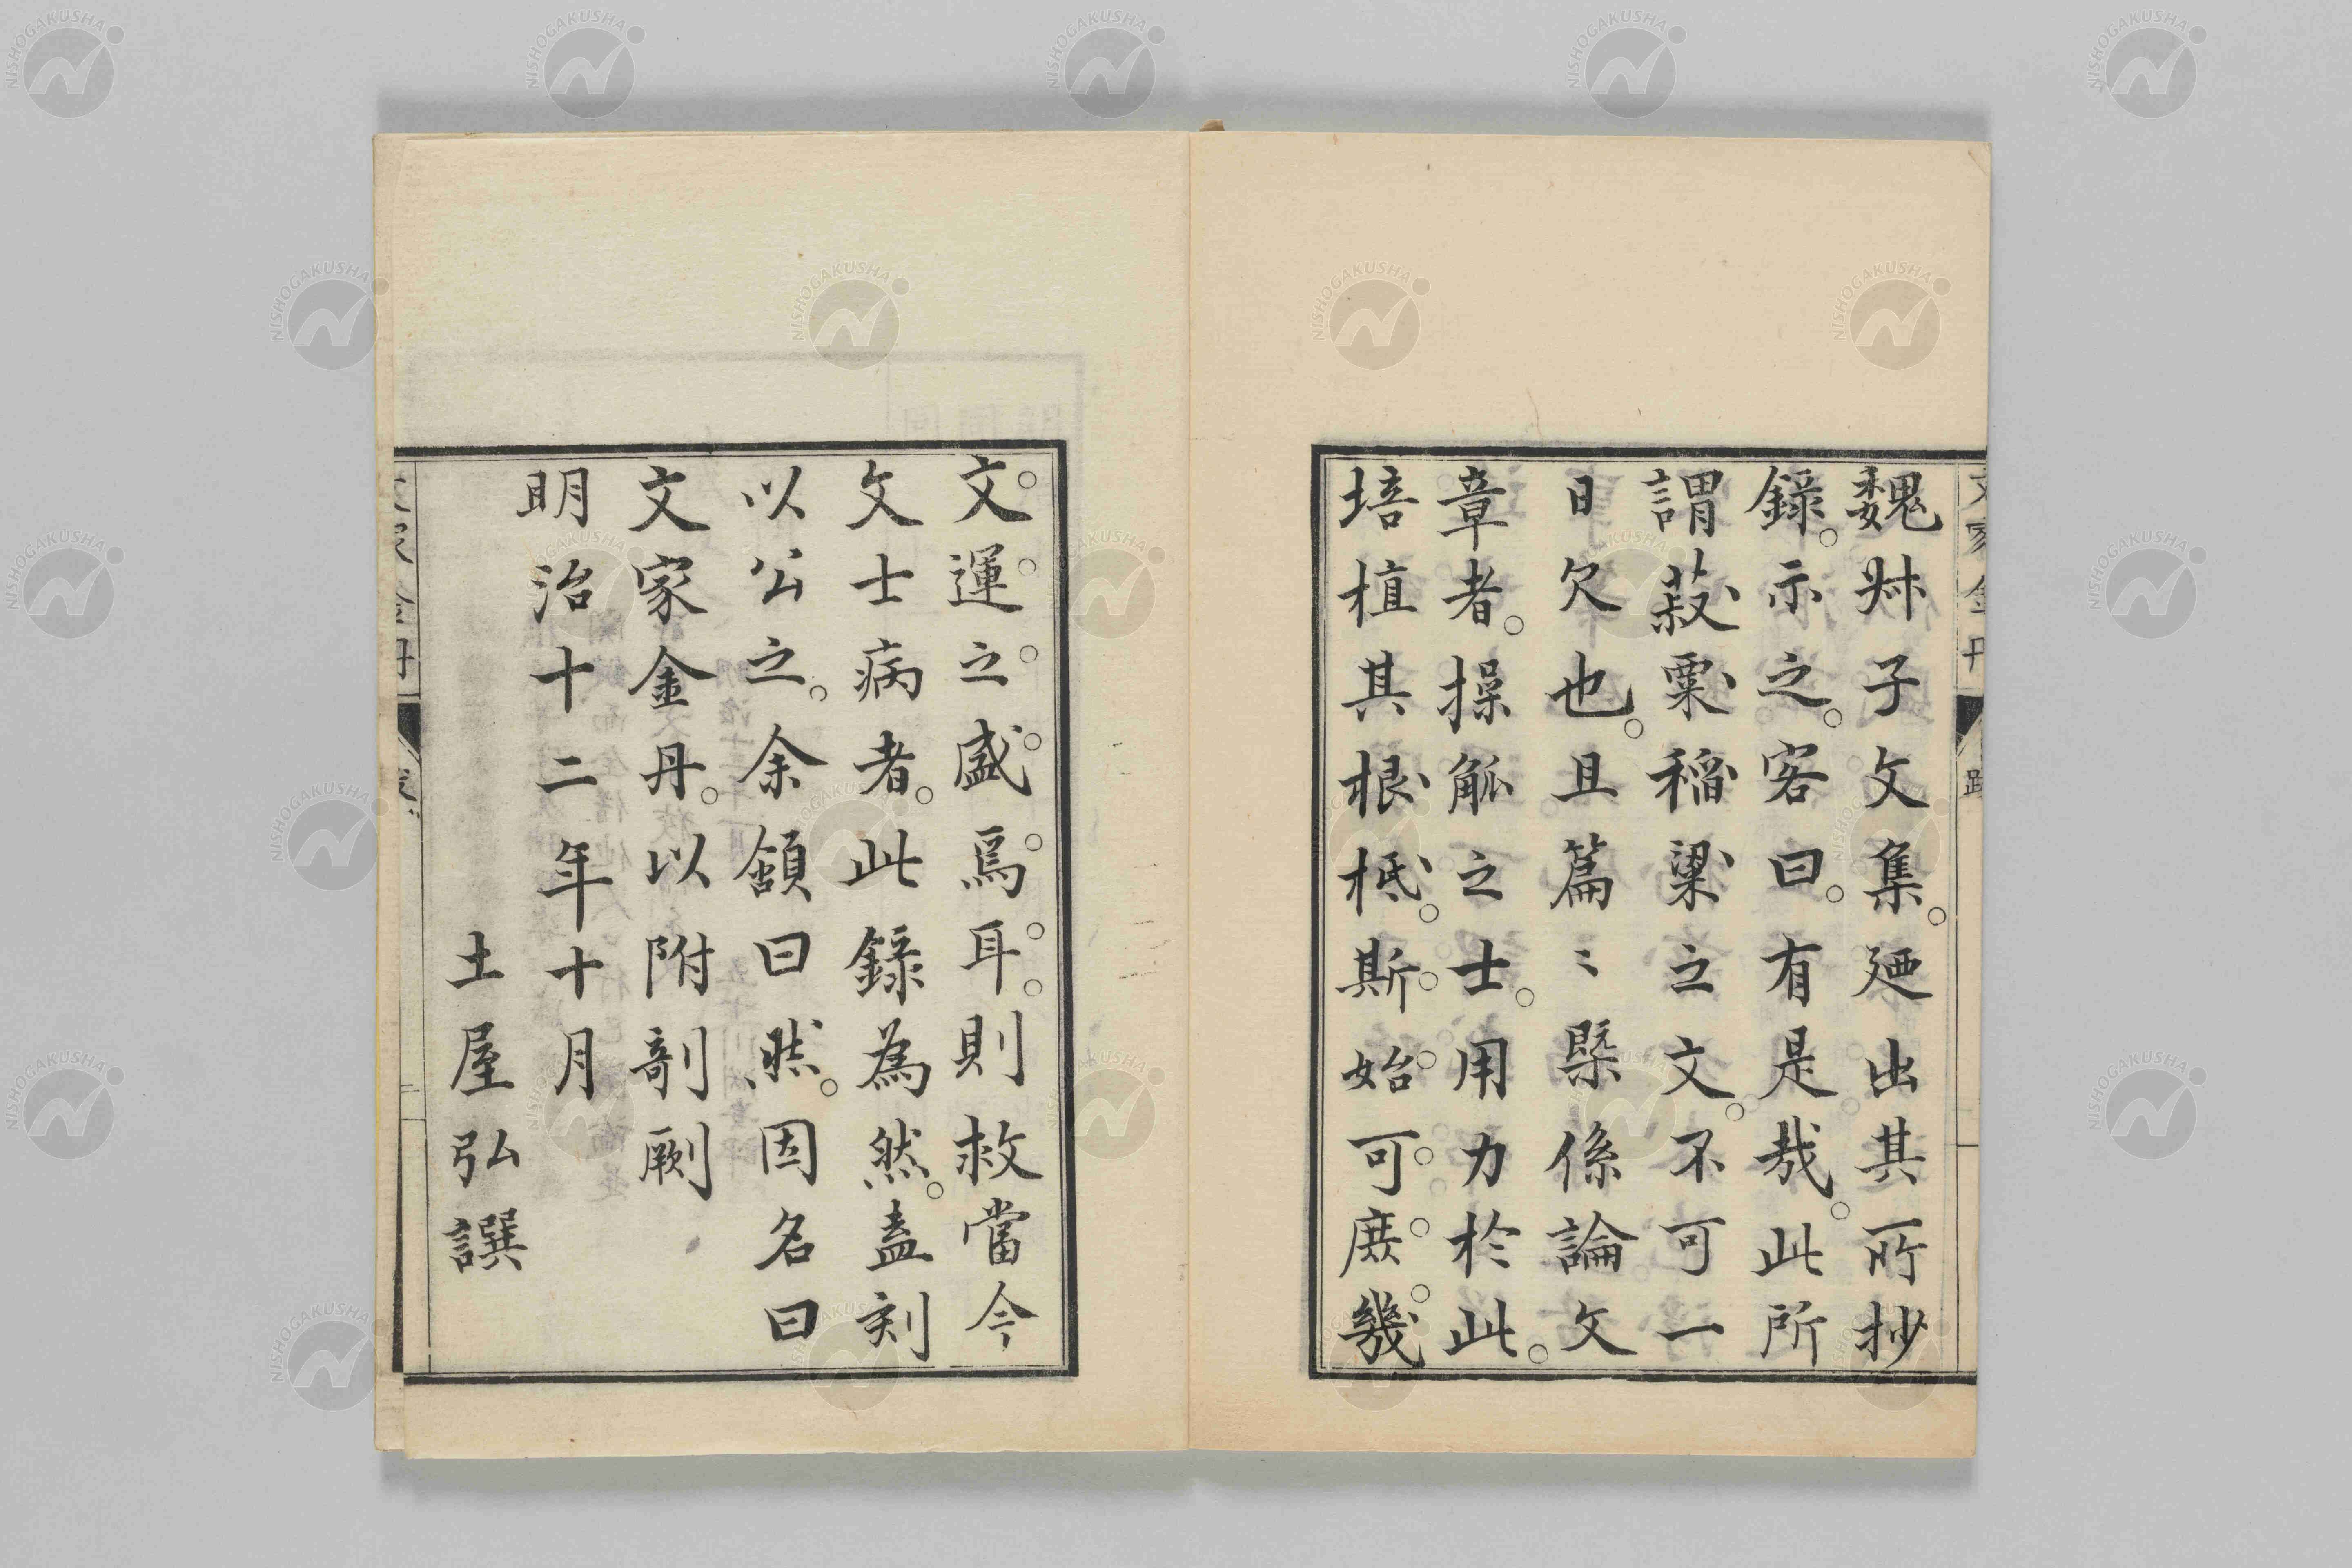 魏叔子文集。廼出其所抄
錄。示之。客曰。有是哉。此所
謂菽粟稻粱之文。不可一
日欠也。且篇〻槩係論文
章者。操觚之士。用力於此。
培植其根柢。斯始可庶幾
文運之盛焉耳。則救當今
文士病者。此錄為然。盍刻
以公之。余頷曰然。因名曰
文家金丹。以附剞劂
明治十二年十月
土屋弘譔
NISHOGAKUSHA